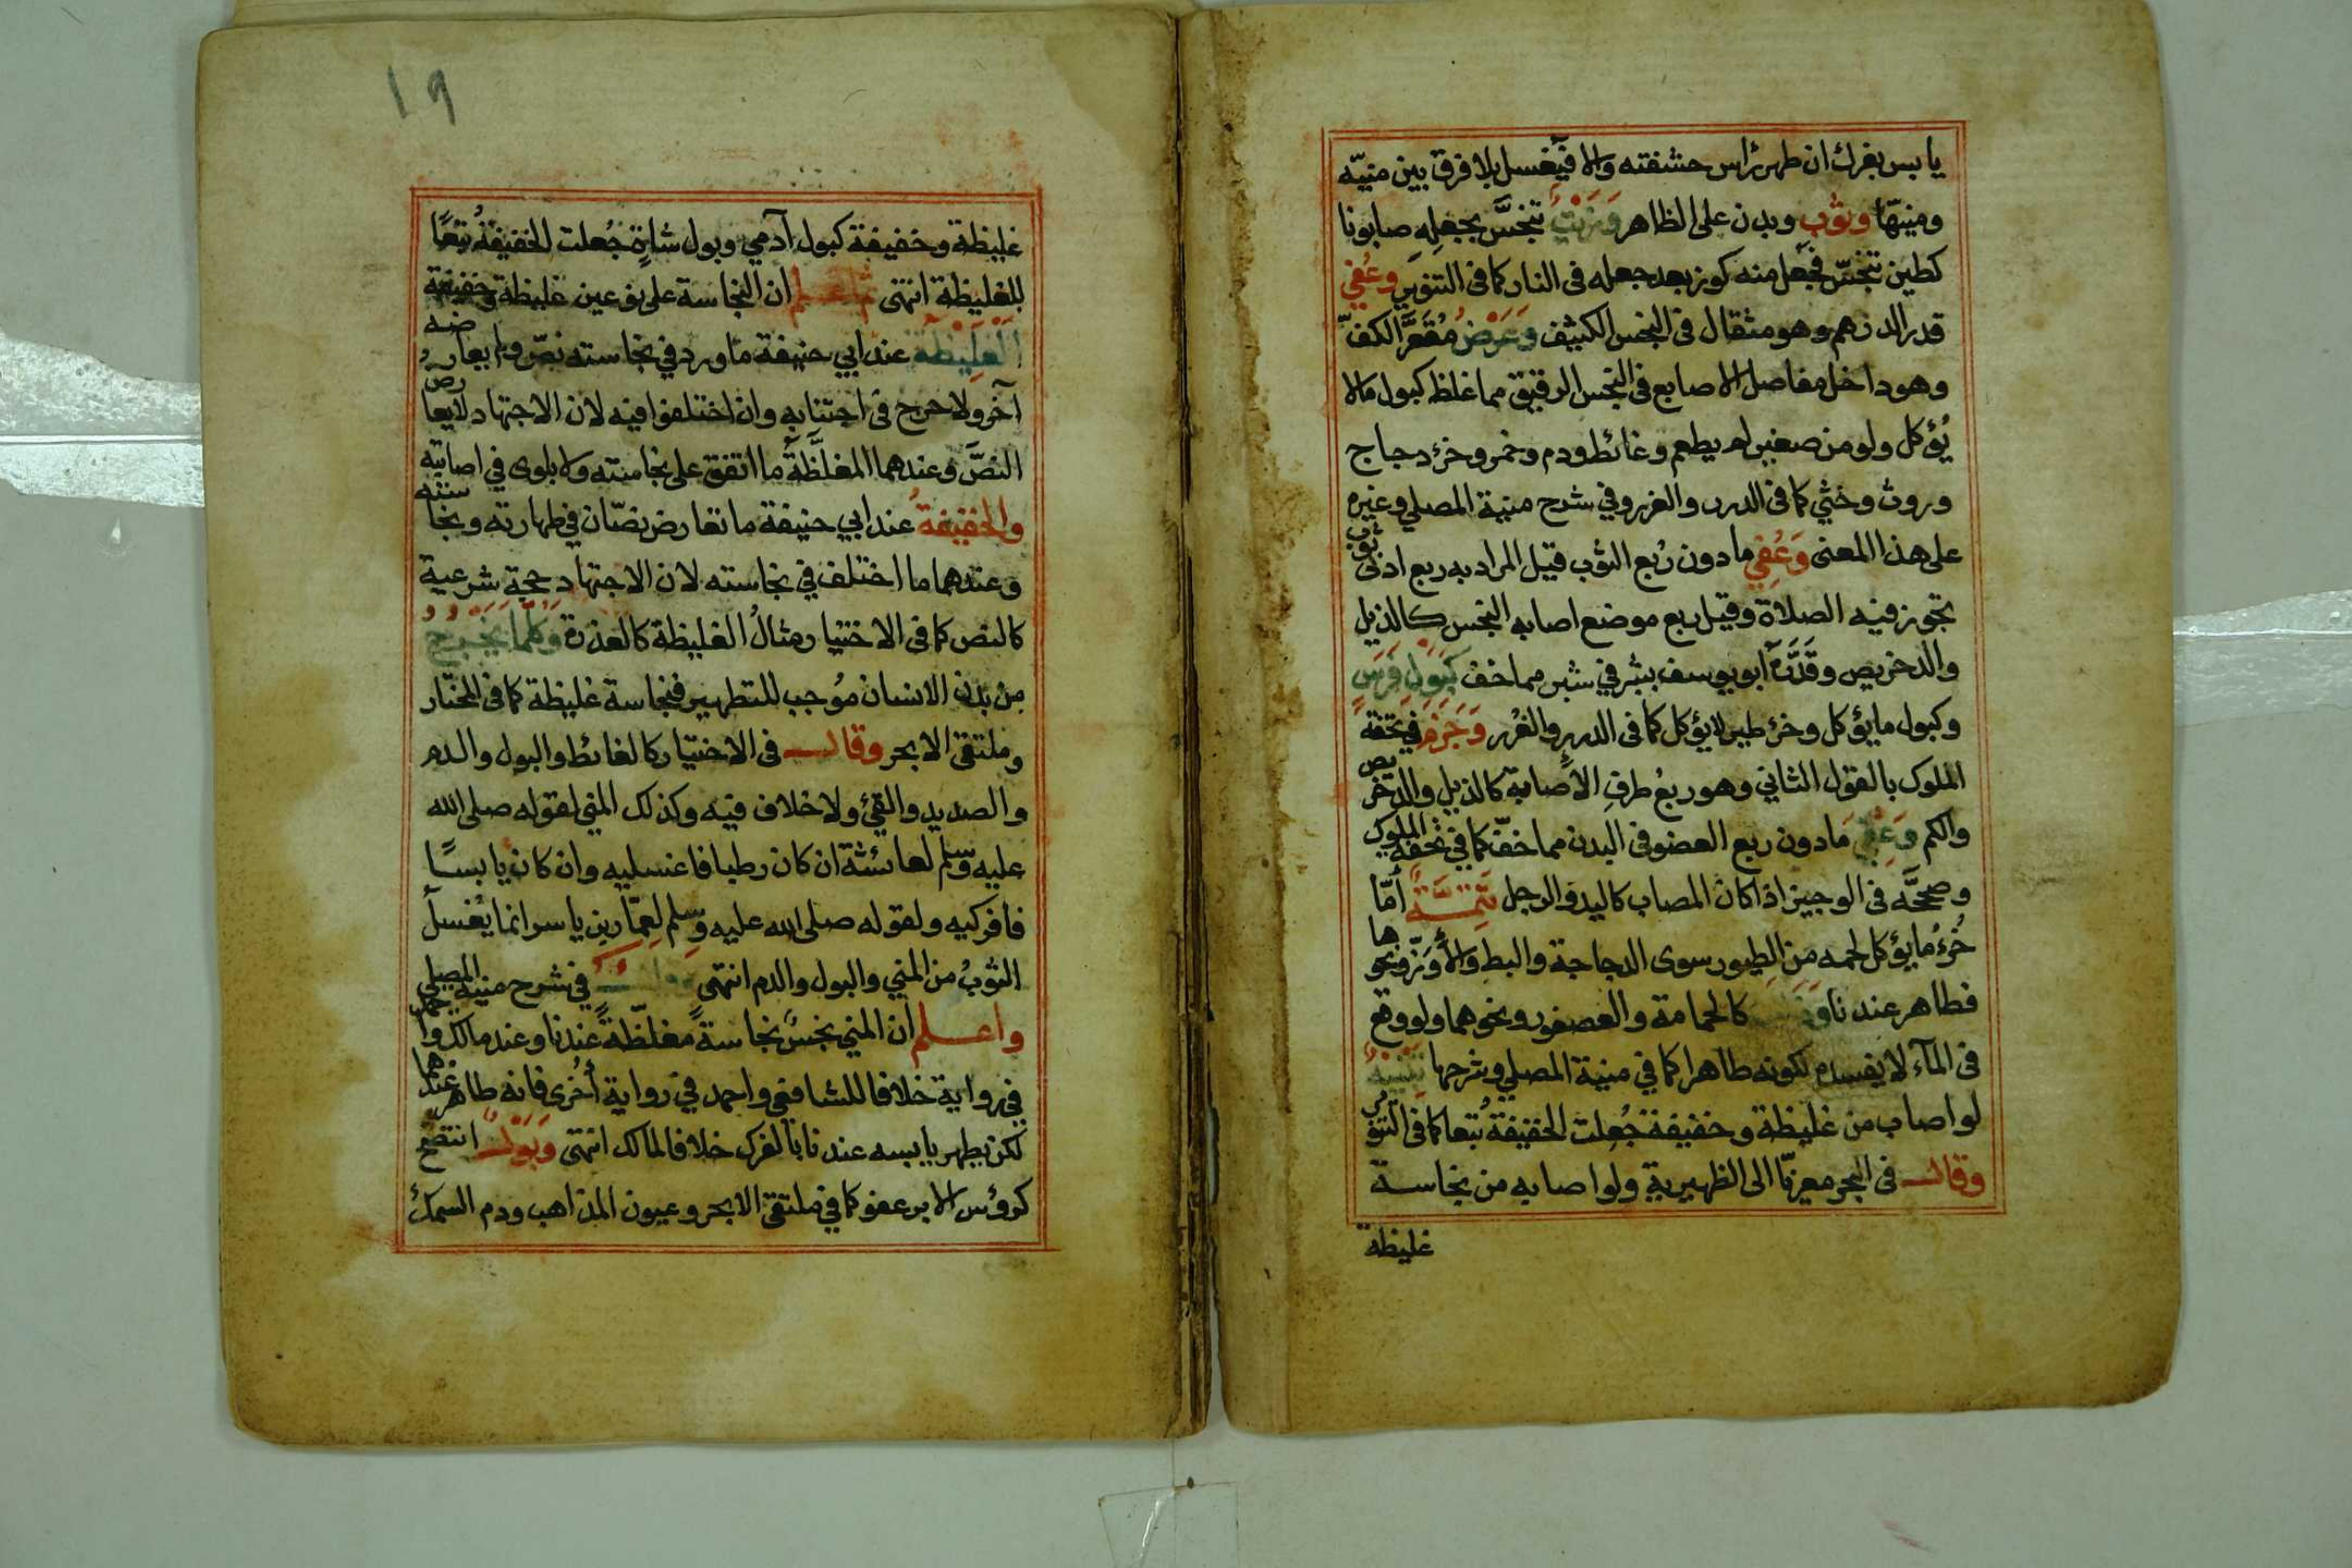 يابس بفرك ان طهر راس حشفته والا فيغسل بلا فرق بين منيّه
ومنيهّا وثوب وبدن على الظاهر وَزَيْتٍ تنجَّس بجعلِهِ صابونا
كطين تنجّس فجعل منه كوز بعد جعله فى النار كما فى التنوير وعُفِيَ
قدر الدرهم وهو مثقال فى النجس الكثيف وَعَرْضُ مُقَعَّرِ الكفّ
وهو داخل مفاصل الاصابع فى النجس الرقيق مما غلظ كبول مالا
يُؤكل ولو من صغير لم يطعم وغائط ودم وخمر وخرء دجاج
وروث وخثي كما فى الدرر والغرر وفي شرح منية المصلي وغيره
على هذا المعنى وَعُفِي ما دون رُبع الثوب قيل المراد به ربع ادنى ثوب
تجوز فيه الصلاة وقيل ربع موضع اصابه النجس كالذيل
والدخريص وقَدَّرَهُ ابو يوسف بشبر في شبر مما خف كَبَوْلِ فَرَسٍ
وكبول ما يؤكل وخرء طير لا يؤكل كما فى الدرر والغُرر وَجَزَمَ في تحفة
الملوك بالقول الثاني وهو ربعُ طرفِ الاصابة كالذيل والدخريص
والكم وَعُفِيَ ما دون ربع العضو فى البدن مما خفّ كما في تحفة الملوك
وصححَّه فى الوجيز اذا كان المصاب كاليد والرجل تَتِمَّةٌ أمّا
خُرءُ ما يؤكل لحمه من الطيور سوى الدجاجة والبط والأوَزّ ونحوها
فطاهر عندنا كالحمامة والعصفور ونحوهما ولو وقع
فى المآء لا يفسده لكونه طاهرا كما في منية المصلي وشرحها تَنْبِيهٌ
لو اصاب من غليظة وخفيفة جُعِلت الخفيفةُ تبعا كما فى التنوير
وقال فى البحر معزيّا الى الظهيرية ولو اصابه من نجاسة
غليظة
١٩
غليظة وخفيفة كبول آدمي وبول شاةٍ جُعلت الخفيفةُ تبعًا
للغليظة انتهى ثم اعلم ان النجاسة على نوعين غليظة وخفيفة
اَلْغَلِيْظَة عند ابي حنيفة ما ورد في نجاسته نصّ ولم يعارضه
آخر ولا حرج فى اجتنابه وان اختلفوا فيه لان الاجتهاد لا يعارض
النصَّ وعندهما المغلَّظَة ما اتفق على نجاسته ولا بلوى في اصابته
والخفيفةُ عند ابي حنيفة ما تعارض نصّان في طهارته ونجاسته
وعندهما ما اختلف في نجاسته لان الاجتهاد حجة شرعية
كالنص كما فى الاختيار ومثالُ الغليظة كالعذرة وَكُلُّمَا يَخْرُجُ
مِنْ بَدَنِ الانسان مُوجب للتطهير فنجاسة غليظة كما فى المختار
وملتقى الابحر وقال فى الاختيار كالغائط والبول والدم
والصديد والقيئ ولا خلاف فيه وكذلك المني لقوله صلى الله
عليه وسلم لعائشة ان كان رطبا فاغسليه وان كان يابسًا
فافركيه ولقوله صلى الله عليه وسلم لعمّار بن ياسر انما يُغسل
الثوبُ من المني والبول والدم انتهى في شرح منية المصلي
واعلم ان المني نجسٌ نجاسةً مغلّظةً عندنا وعند مالك واحمد
في رواية خلافا للشافعي واحمد في رواية أخرى فانه طاهر عندهما
لكن يطهر يابسه عندنا بالفرك خلافا لمالك انتهى وَبَوْلٌ انتضح
كرؤس الابر عفو كما في ملتقى الابحر وعيون المذاهب ودم السمك